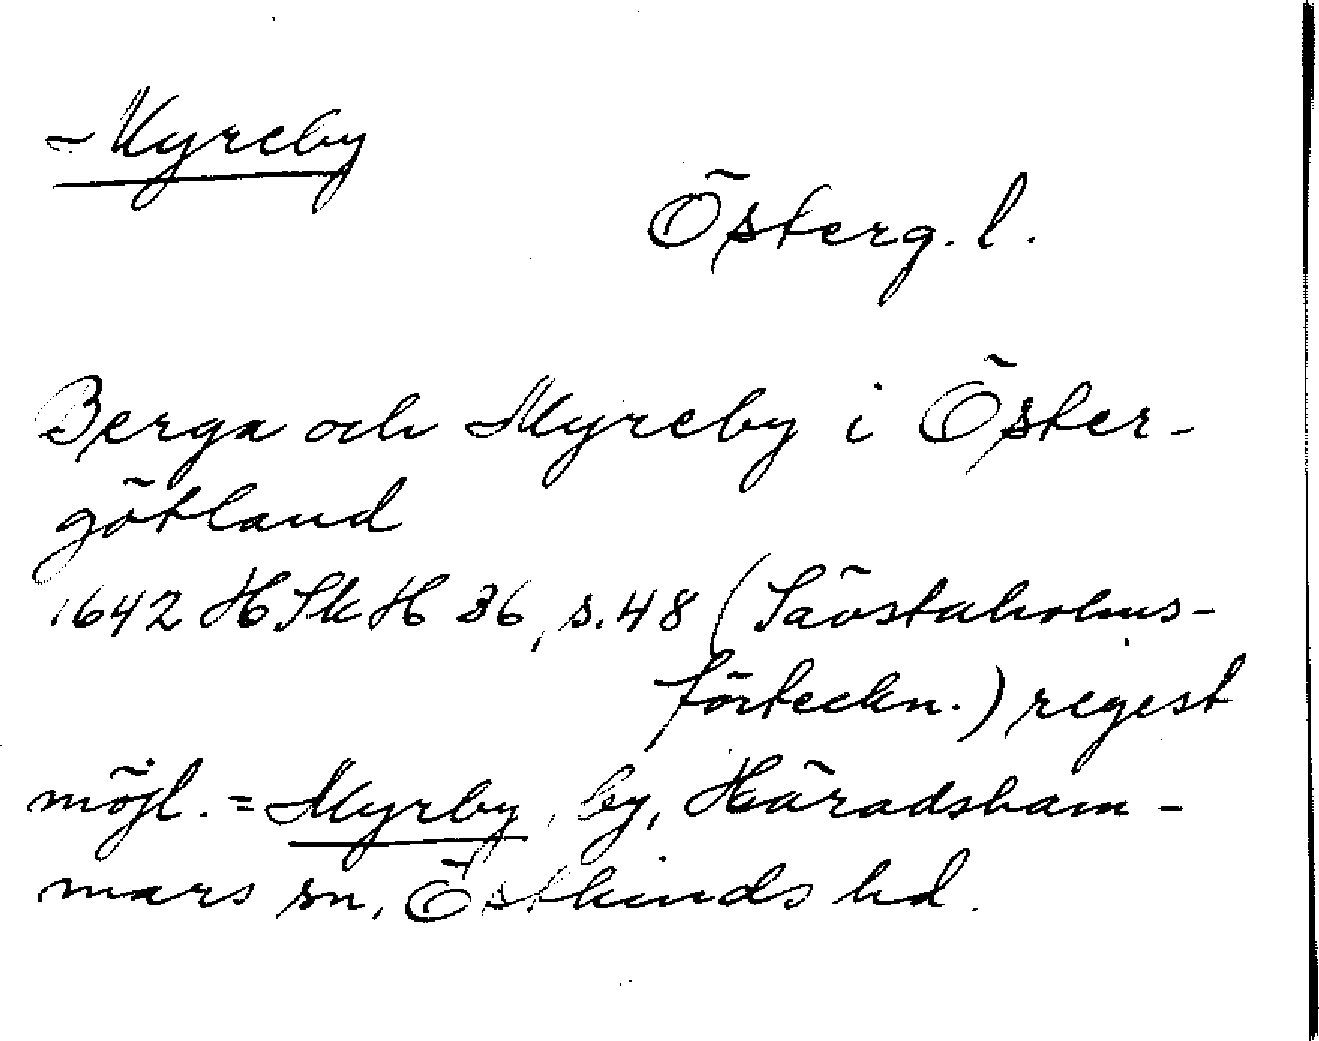 ~ Myreby
Österg. l.
Berga och Myreby i Öster-
götland
1642 HSkH 36, s. 48 (Säöstaholms-
förteckn.) regest
möjl. = Myrby, by, Häradsham-
mars sn, Östkinds hd.